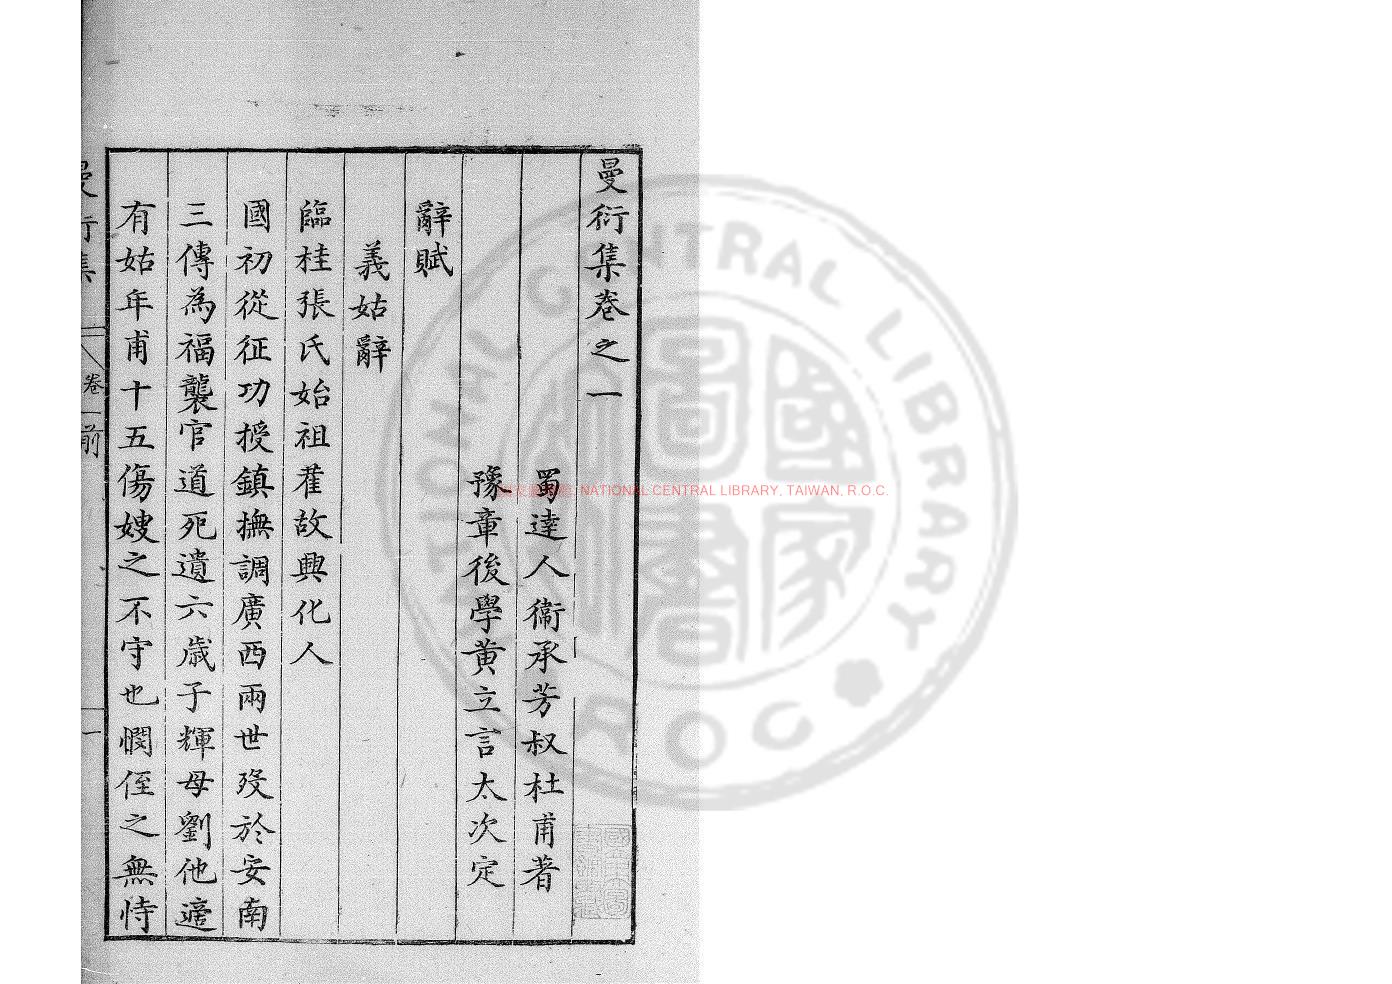 曼衍集卷之一
蜀達人衞承芳叔杜甫著
豫章後學黄立言太次定
辭賦
義姑辭
臨桂張氏始祖雈故興化人
國初從征功授鎮撫調廣西兩世歿於安南
三傳為福襲官道死遺六歲子輝母劉他適
有姑年甫十五傷嫂之不守也憫侄之無恃
卷一前
一
NATIONAL CENTRAL LIBRARY, TAIWAN, R.O.C.